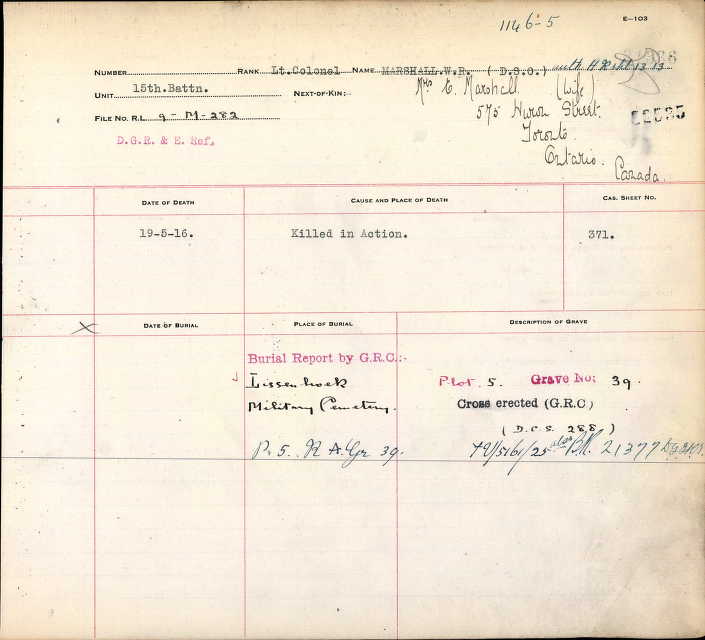 1146-5
E—103
NUMBER RANK Lt.Colonel NAME MARSHALL.W.R. (D.S.O.)
UNIT 15th.Battn. NEXT-OF-KIN:- Mrs C. Marshall (Wife)
575 Huron Street.
FILE NO. R.L. 9-M-282
Toronto
D.G.R. & E. Ref.
Ontario.
Canada.
DATE OF DEATH CAUSE AND PLACE OF DEATH CAS. SHEET NO.
19-5-16. Killed in Action. 371.
X DATE OF BURIAL PLACE OF BURIAL DESCRIPTION OF GRAVE
Burial Report by G.R.C.:-
Lissenhoek Plot. 5. Grave No: 39.
Military Cemetery. Cross erected (G.R.C)
(D.C.S. 288)
P. 5. R A. Gr 39. 21377